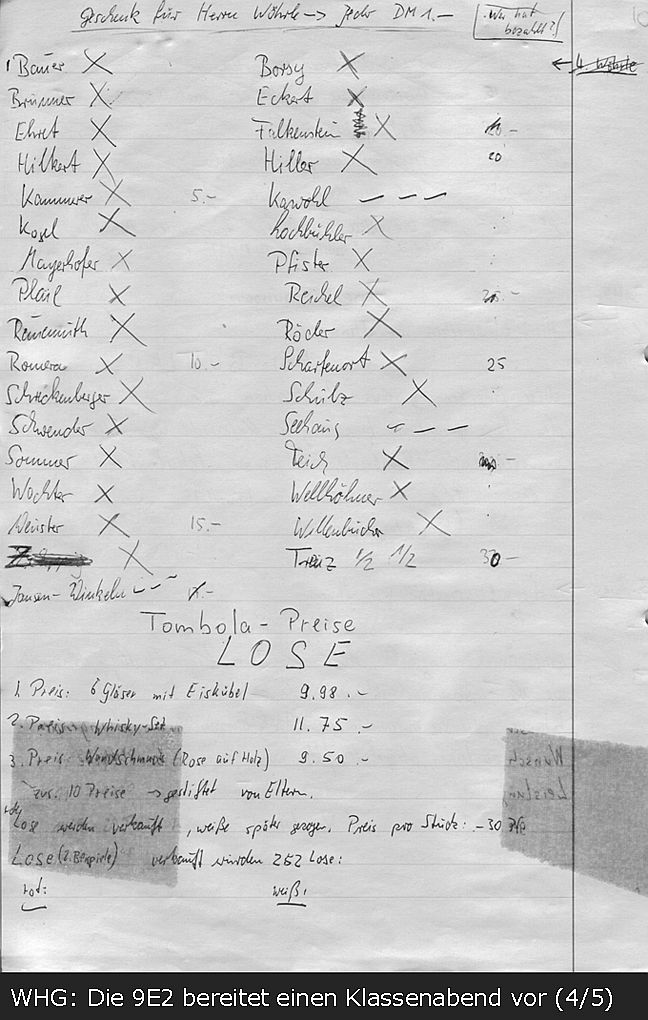 Geschenk für Herrn Wöhrle -> jeder DM 1.- Wer hat bezahlt?
Bauer X Borsy X
Brunner X Eckert X
Ehret X Falkenstein X
Hilkert X Hiller X 20
Kammerer X 5.- Kawohl - - -
Kogel X Hochbichler X
Mayerhofer X Pfister X
Plail X Reichel X
X Röder X
Romera X 10.- Scharfenort X 25
Schreckenberger X Schütz X
Schwender X Seehaus - - -
Sommer X Teich X
Wachter X Wellhöfner X
X 15.- Wellenbücher X
X 1/2 1/2 30 -
Jansen-Winkeln - - -
Tombola - Preise
LOSE
1. Preis: 6 Gläser mit Eiskübel 9.98 .-
2. Preis: Whisky-Set 11.75 .-
3. Preis Wandschmuck (Rose auf Holz) 9.50 .-
zus. 10 Preise -> gestiftet von Eltern.
rote Lose werden verkauft, weiße später gezogen. Preis pro Stück: -30 Pfg
Lose (2 Beispiele) verkauft wurden 252 Lose:
rot: weiß:
Wunsch
Leistung
WHG: Die 9E2 bereitet einen Klassenabend vor (4/5)